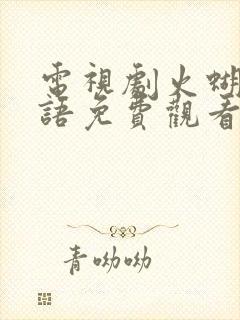 電視劇火蝴
語免費觀看
青呦呦